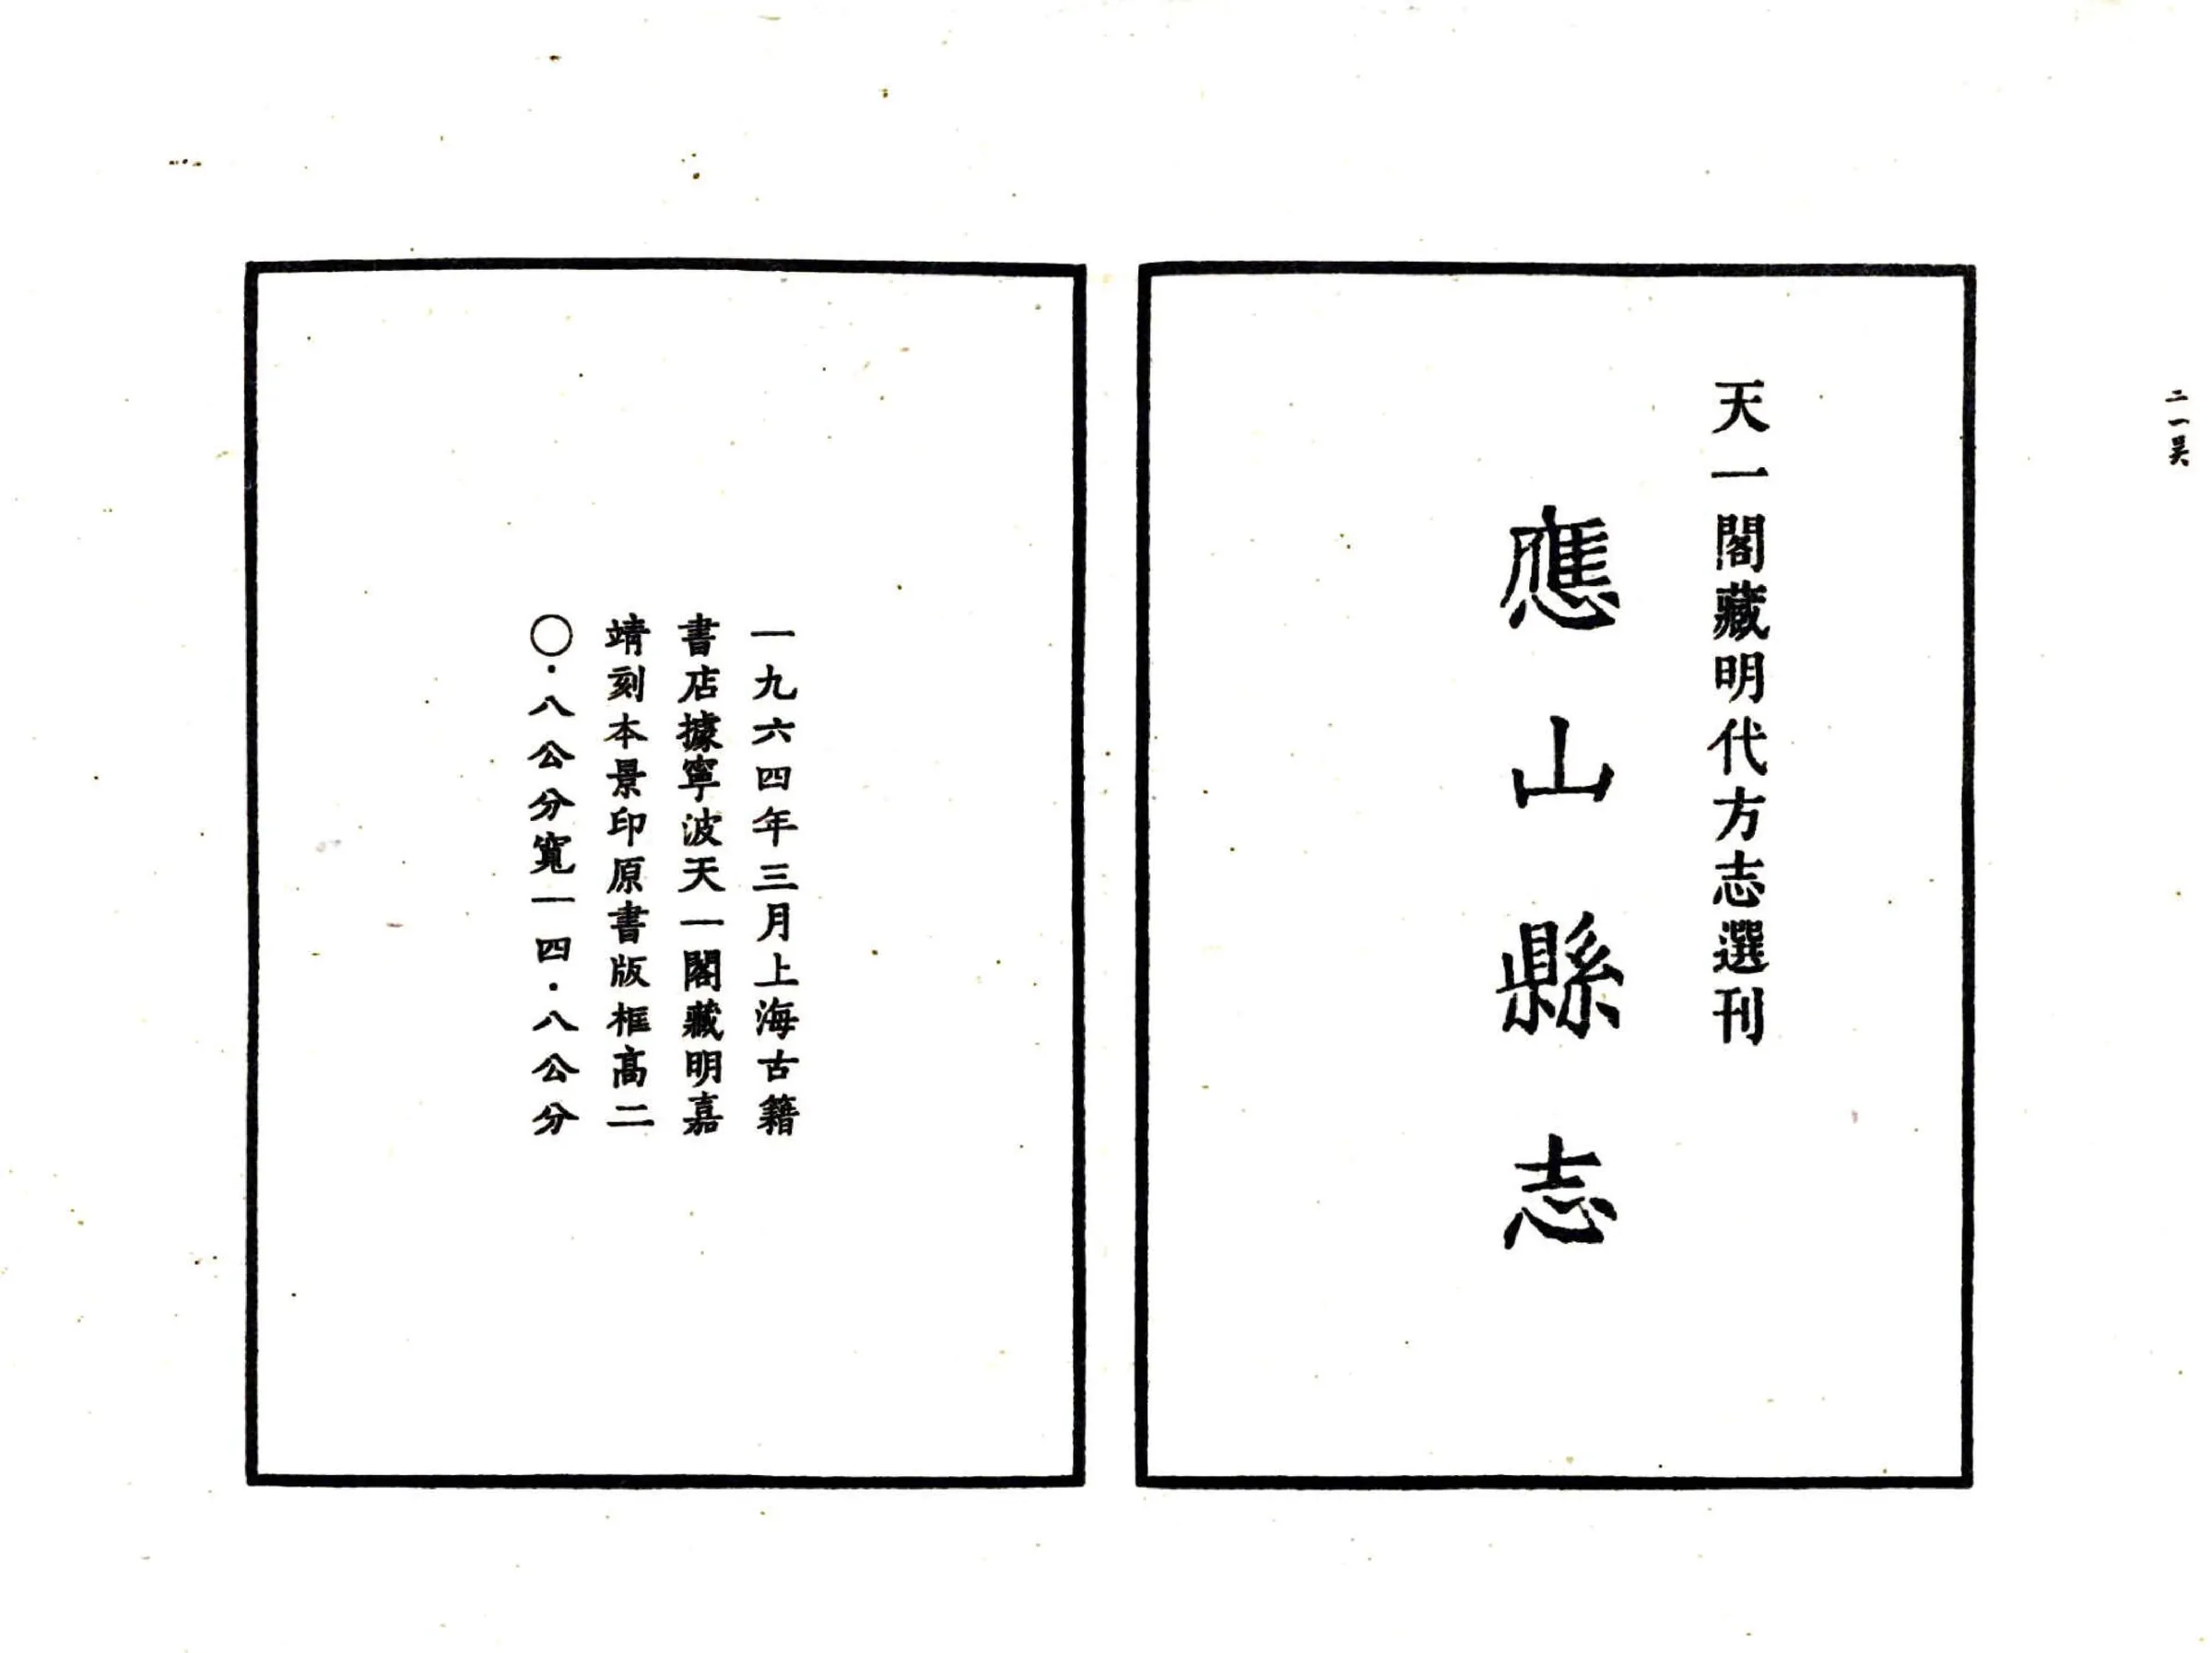 天一閣藏明代方志選刊
應山縣志
一九六四年三月上海古籍
書店據寧波天一閣藏明嘉
靖刻本景印原書版框高二
〇·八公分寬一四·八公分